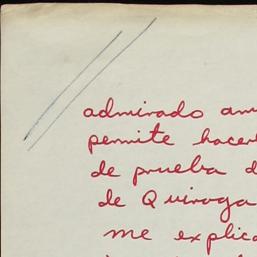 admirado am
permite hacer
de prueba d
de Quiroga
me explic